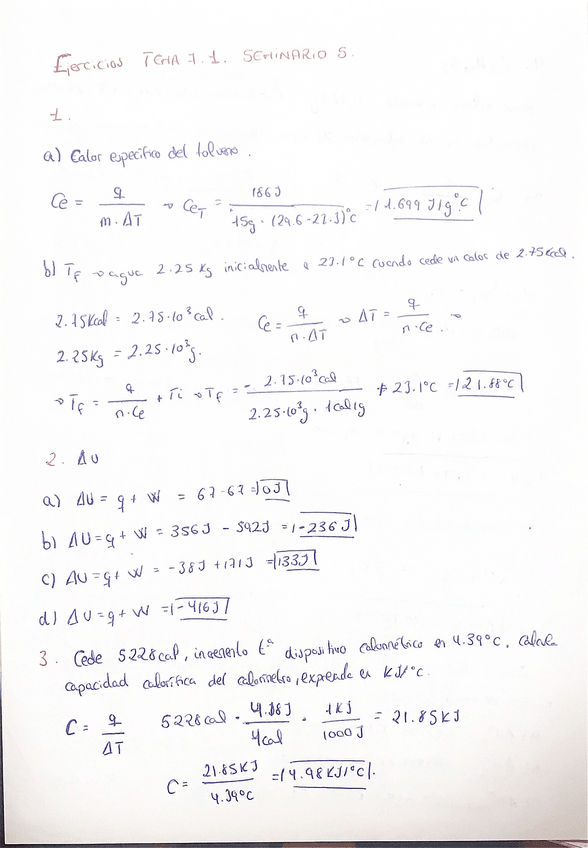 Ejercicios TEMA 7.1. SEMINARIO 5.
1.
a) Calor especifico del tolueno.
Ce = q / m·ΔT → Ce_T = 186J / 15g·(29.6-22.3)°C = 1.699 J/g°C
b) T_f → agua 2.25 Kg inicialmente a 23.1°C cuando cede un calor de 2.75Kcal.
2.75Kcal = 2.75·10³cal. Ce = q / m·ΔT → ΔT = q / m·Ce →
2.25Kg = 2.25·10³g.
→ T_f = q / m·Ce + Ti → T_f = - 2.75·10³cal / 2.25·10³g · 1cal/g + 23.1°C = 21.88°C
2. ΔU
a) ΔU = q + W = 67-67 = 0J
b) ΔU = q + W = 356J - 592J = -236J
c) ΔU = q + W = -38J + 171J = 133J
d) ΔU = q + W = -416J
3. Cede 5228cal, incremento tª dispositivo calorimétrico en 4.39°C, calcula
capacidad calorífica del calorímetro, expresada en KJ/°C.
C = q / ΔT 5228cal · 4.18J / 1cal · 1KJ / 1000J = 21.85KJ
C = 21.85KJ / 4.39°C = 4.98KJ/°C.